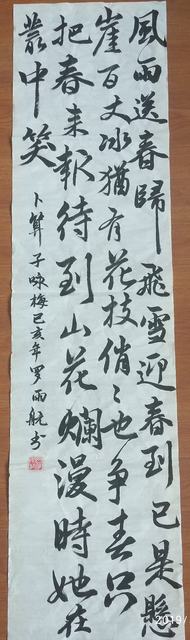 風雨送春歸飛雪迎春到已是懸
崖百丈冰猶有花枝俏〻也争春只
把春来報待到山花爛漫時她在
叢中笑
卜算子咏梅己亥年罗雨航书
2019/